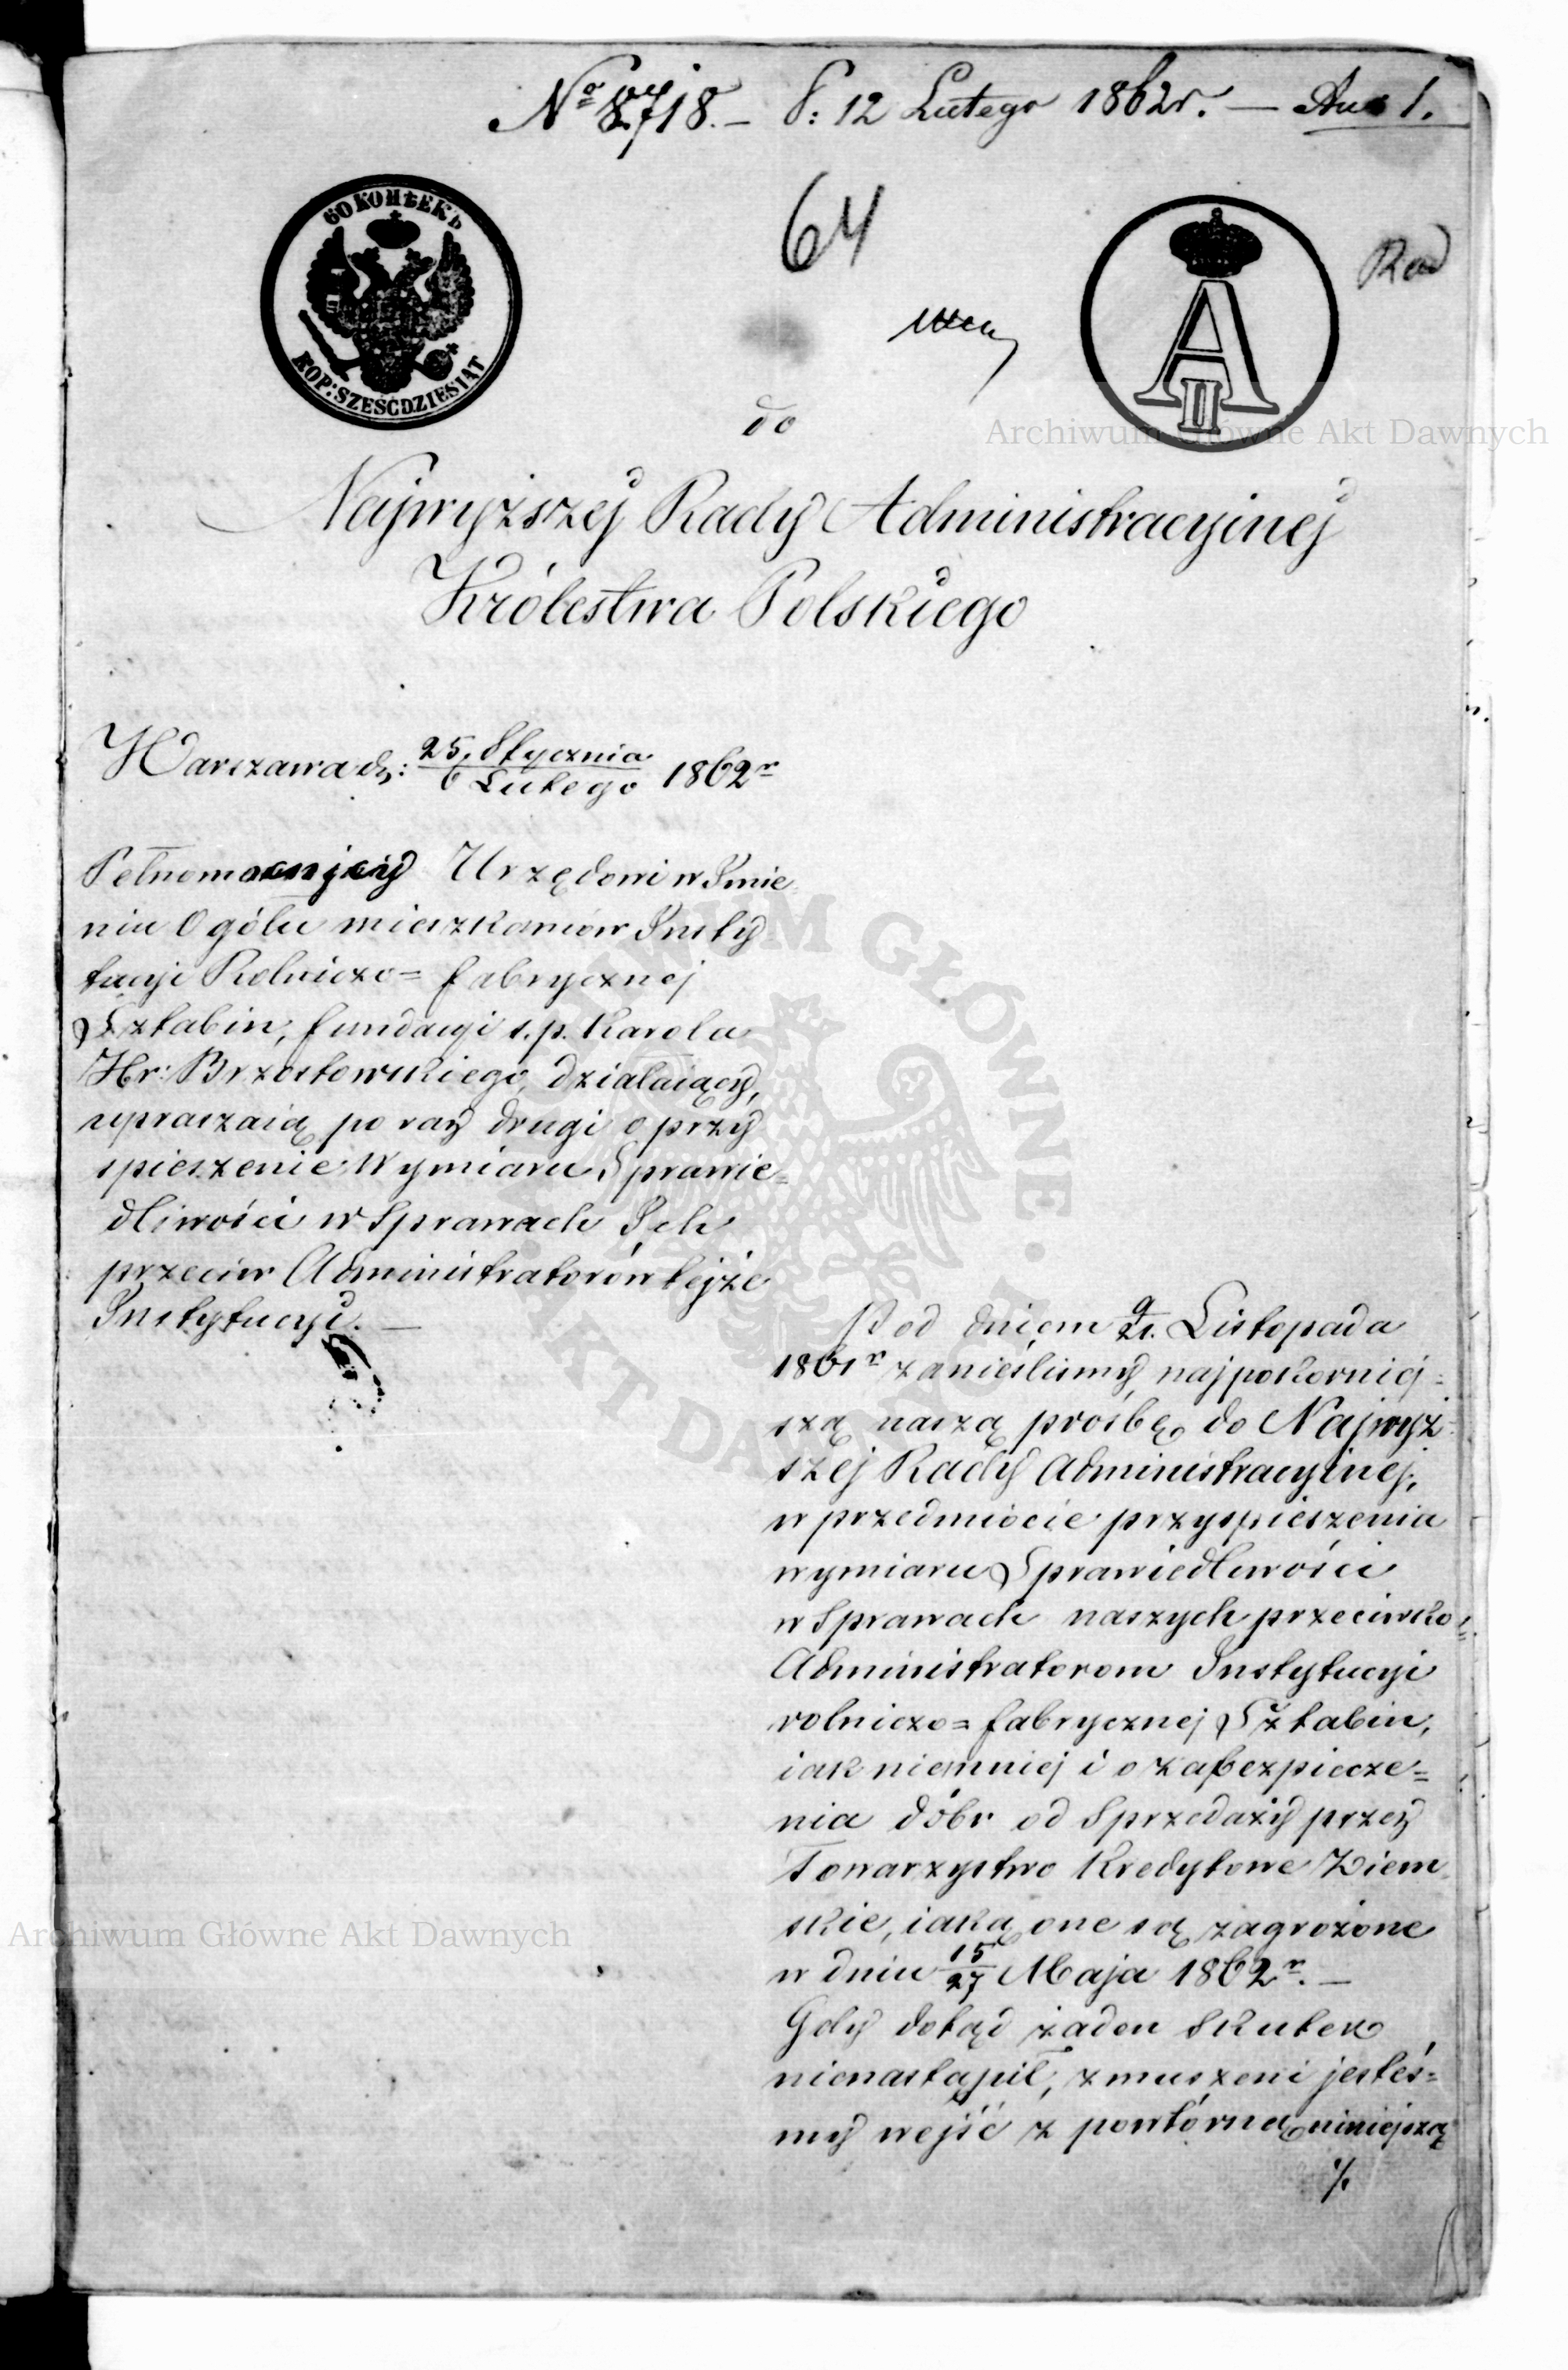 № 8718. — d: 12 Lutego 1862 r. — Au 1.
60 КОПѢЕКЪ
KOP: SZEŚĆDZIESIĄT
64
A II
Rad
do
Najwyższej Rady Administracyjnej
Królestwa Polskiego
Warszawa dn: 25 Stycznia / 6 Lutego 1862 r
Pełnomocnicy Urzędowi w Imie
niu Ogółu mieszkańców Insty
tucyi Rolniczo= fabrycznej
Sztabin, fundacyi ś.p. Karola
Hr: Brzostowskiego, działaiący,
upraszaią po raz drugi o przy
spieszenie Wymiaru Sprawie=
dliwości w Sprawach Ich
przeciw Administratorów tejże
Instytucyi. —
Pod dniem 9/21. Listopada
1861 r zanieślismy najpokorniej=
szą naszą prośbę, do Najwyż
szej Rady Administracyjnej,
w przedmiocie przyspieszenia
wymiaru Sprawiedliwości
w Sprawach naszych przeciwko
Administratorom Instytucyi
rolniczo= fabrycznej Sztabin,
iak niemniej i o zabezpiecze=
nia dóbr od Sprzedaży przez
Towarzystwo Kredytowe Ziem
skie, iaką one są zagrożone
w dniu 15/27 Maja 1862 r. —
Gdy dotąd żaden Skutek
nienastąpił, zmuszeni jesteś=
my wejść z powtórną niniejszą
./.
Archiwum Główne Akt Dawnych
Archiwum Główne Akt Dawnych
ARCHIWUM GŁÓWNE · AKT DAWNYCH ·